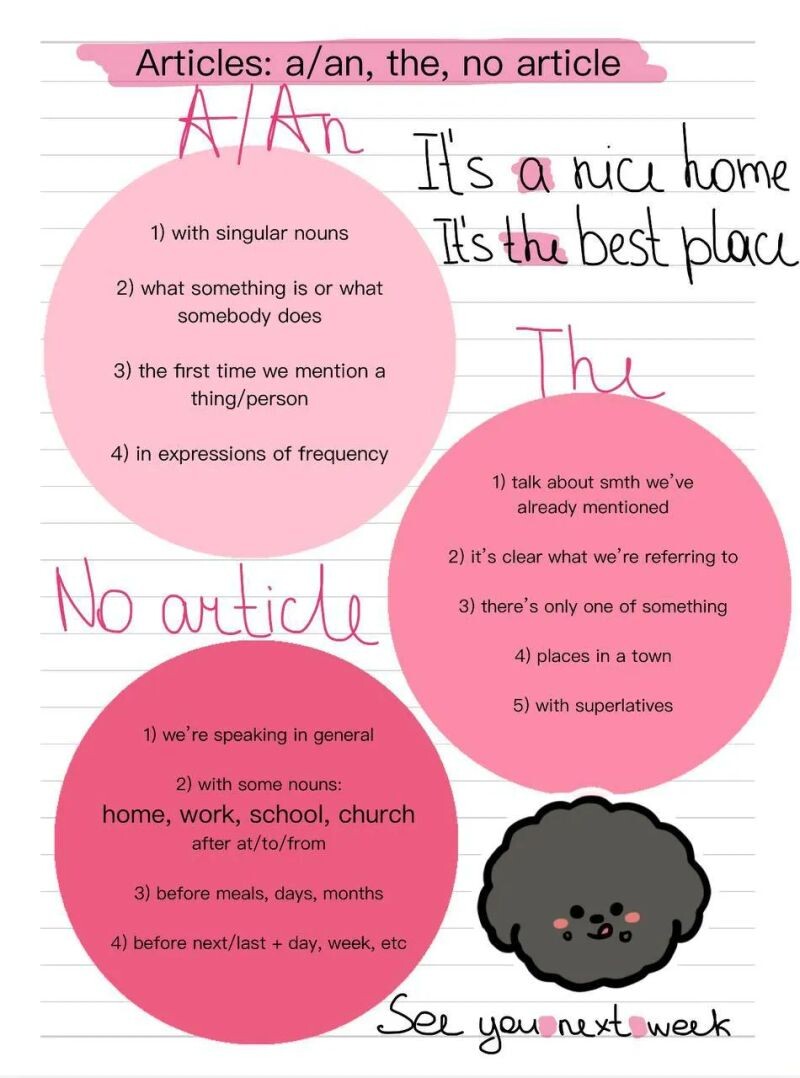 Articles: a/an, the, no article
A/An
It's a nice home
It's the best place
1) with singular nouns
2) what something is or what
somebody does
3) the first time we mention a
thing/person
4) in expressions of frequency
The
1) talk about smth we've
already mentioned
2) it's clear what we're referring to
3) there's only one of something
4) places in a town
5) with superlatives
No article
1) we're speaking in general
2) with some nouns:
home, work, school, church
after at/to/from
3) before meals, days, months
4) before next/last + day, week, etc
See you next week